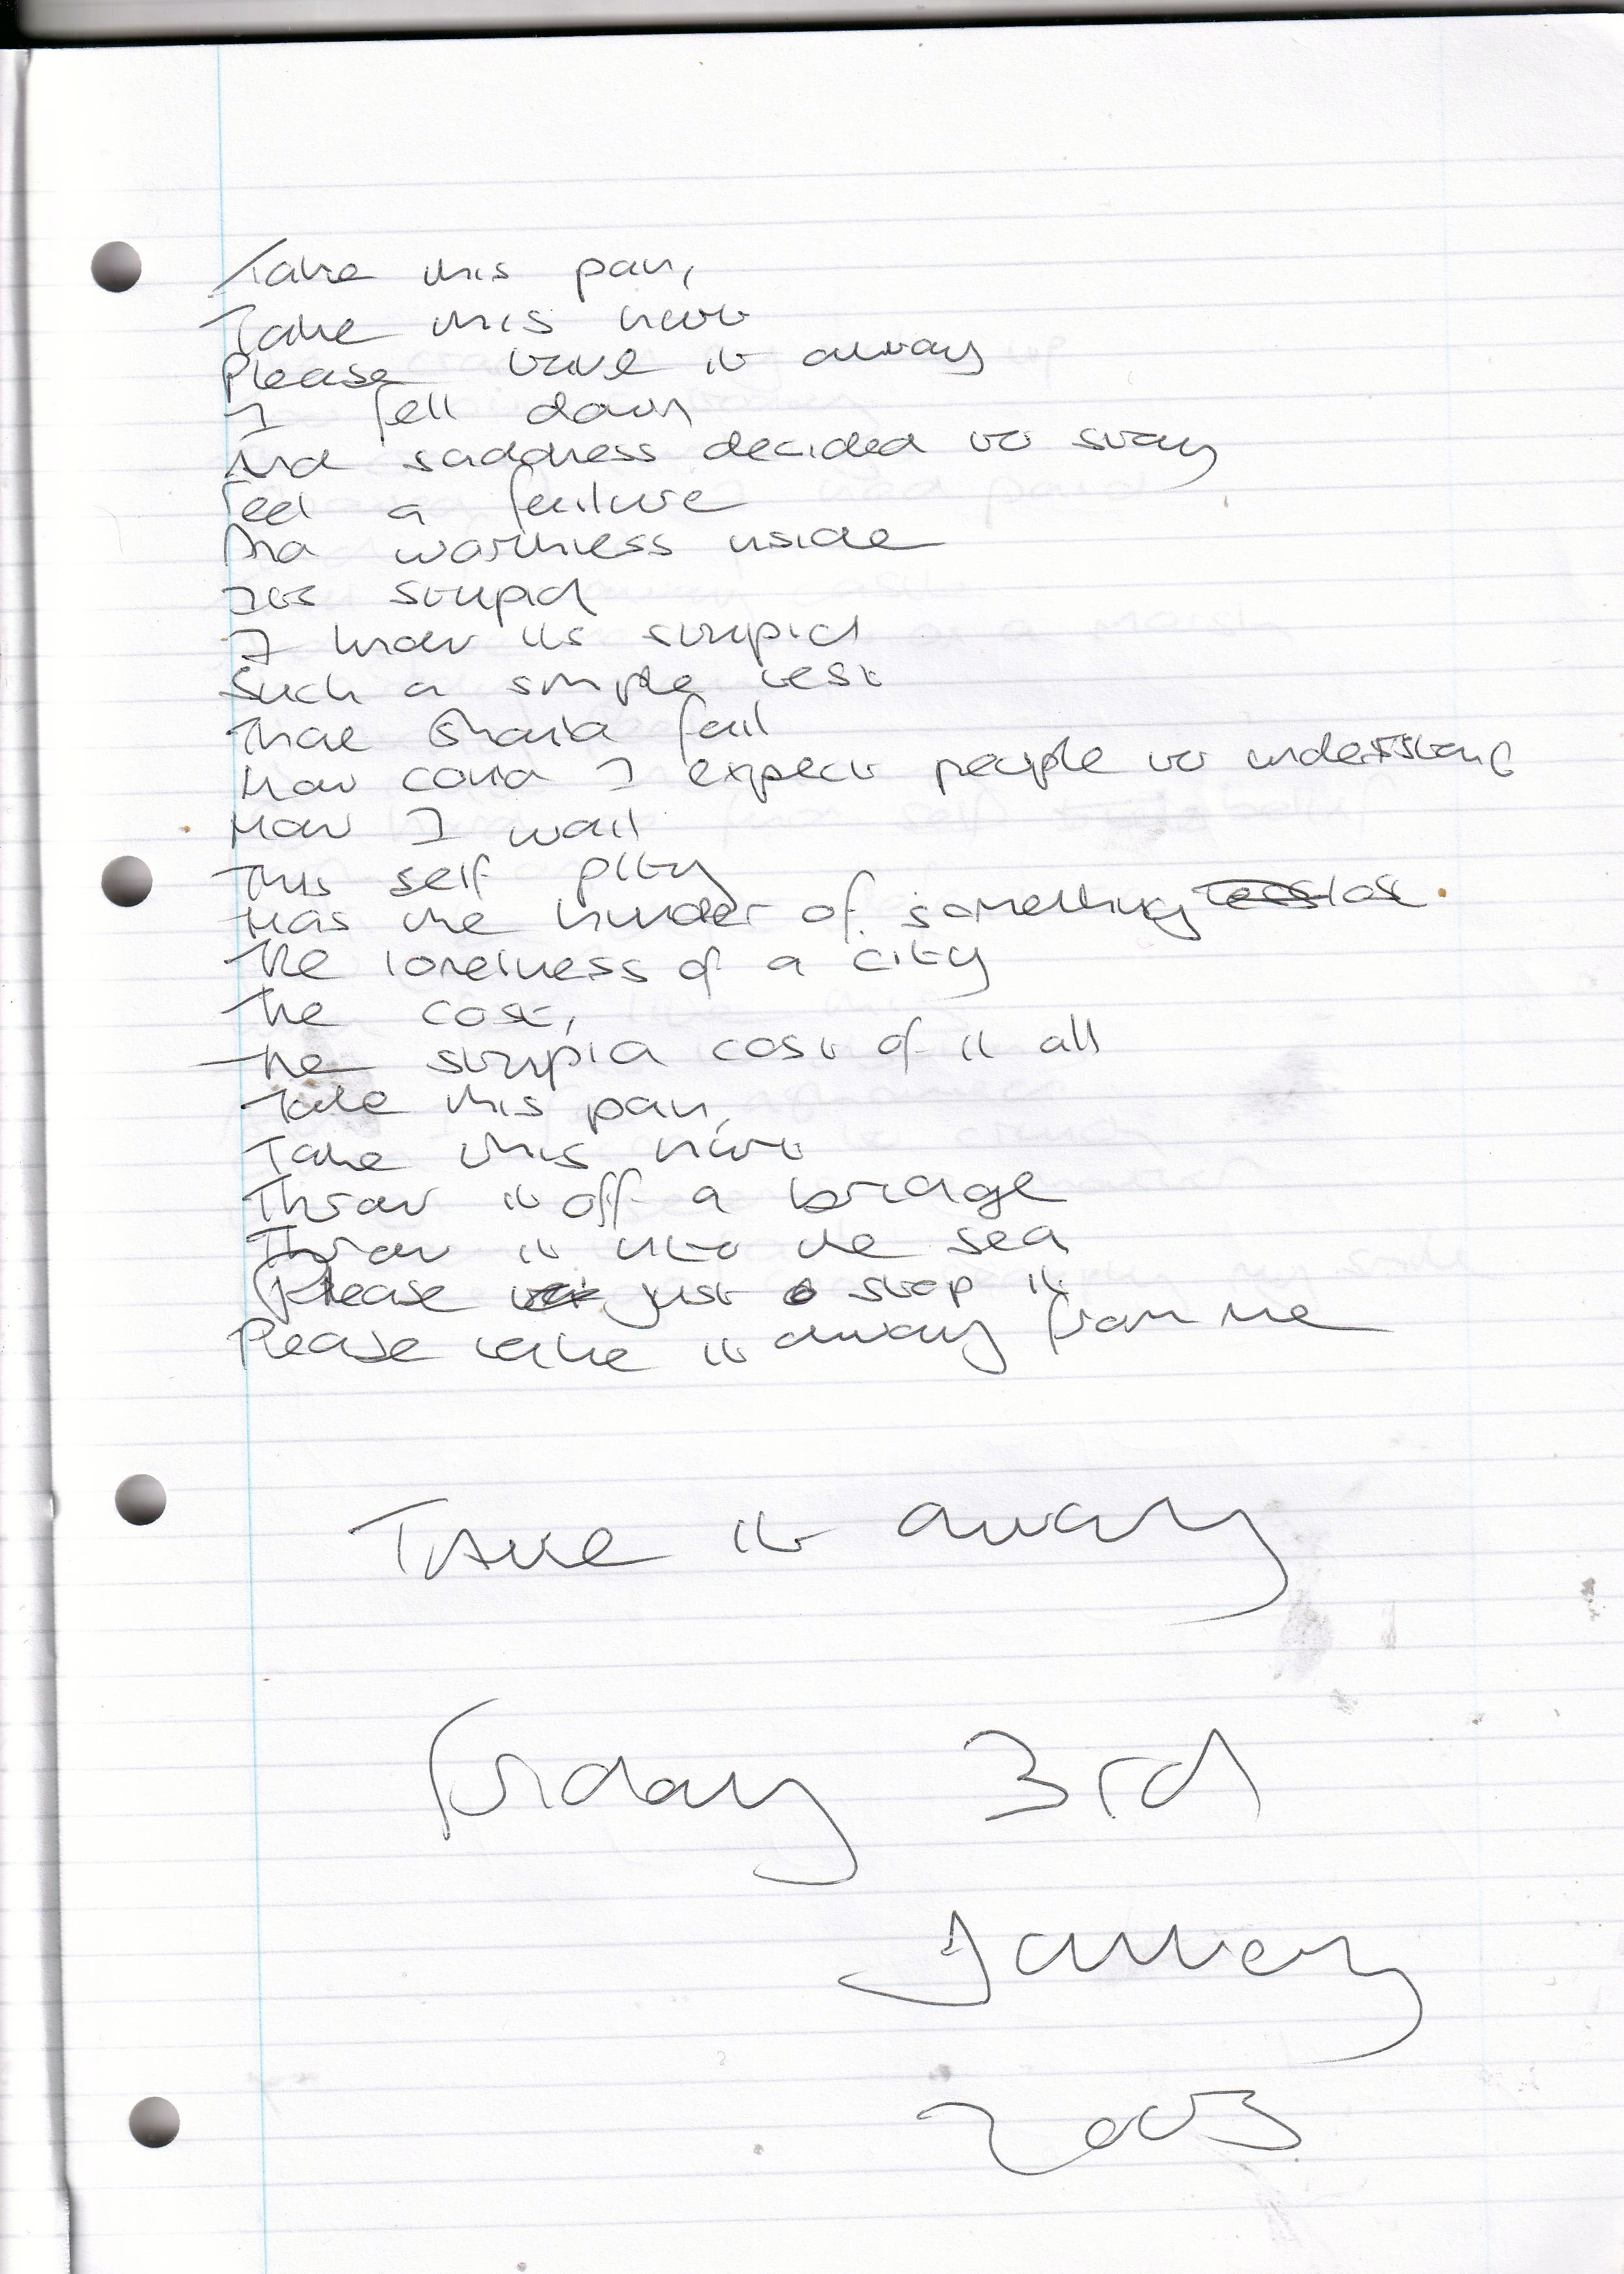 Take this pain,
Take this hurt
Please take it away
I fell down
And saddness decided to stay
feel a failure
And inside
Its stupid
I know its stupid
Such a simple test
That should fail
How could I expect people to understand
How I wail
This self pity
Has the of something lost
The loneliness of a city
The cost,
The stupid cost of it all
Take this pain,
Take this hurt
Throw it off a bridge
Throw it into the sea
Please just stop it
Please take it away from me
TAke it away
friday 3rd
January
2003